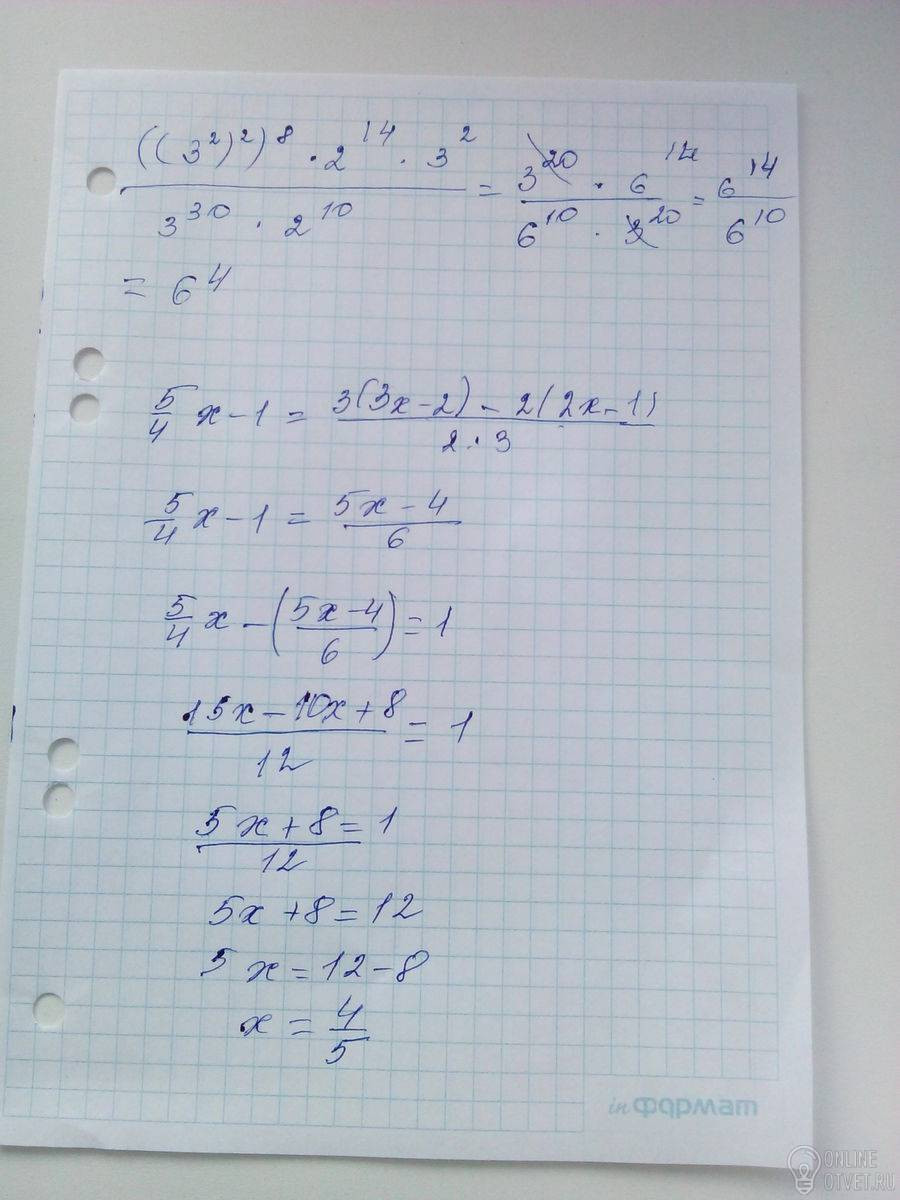 ((3²)²)⁸ · 2¹⁴ · 3² / 3³⁰ · 2¹⁰ = 3²⁰ · 6¹⁴ / 6¹⁰ · 3²⁰ = 6¹⁴ / 6¹⁰
= 6⁴
5/4 x - 1 = 3(3x-2) - 2(2x-1) / 2·3
5/4 x - 1 = 5x - 4 / 6
5/4 x - (5x-4 / 6) = 1
15x - 10x + 8 / 12 = 1
5x + 8 / 12 = 1
5x + 8 = 12
5x = 12 - 8
x = 4/5
inФормат
ONLINE
OTVET.RU